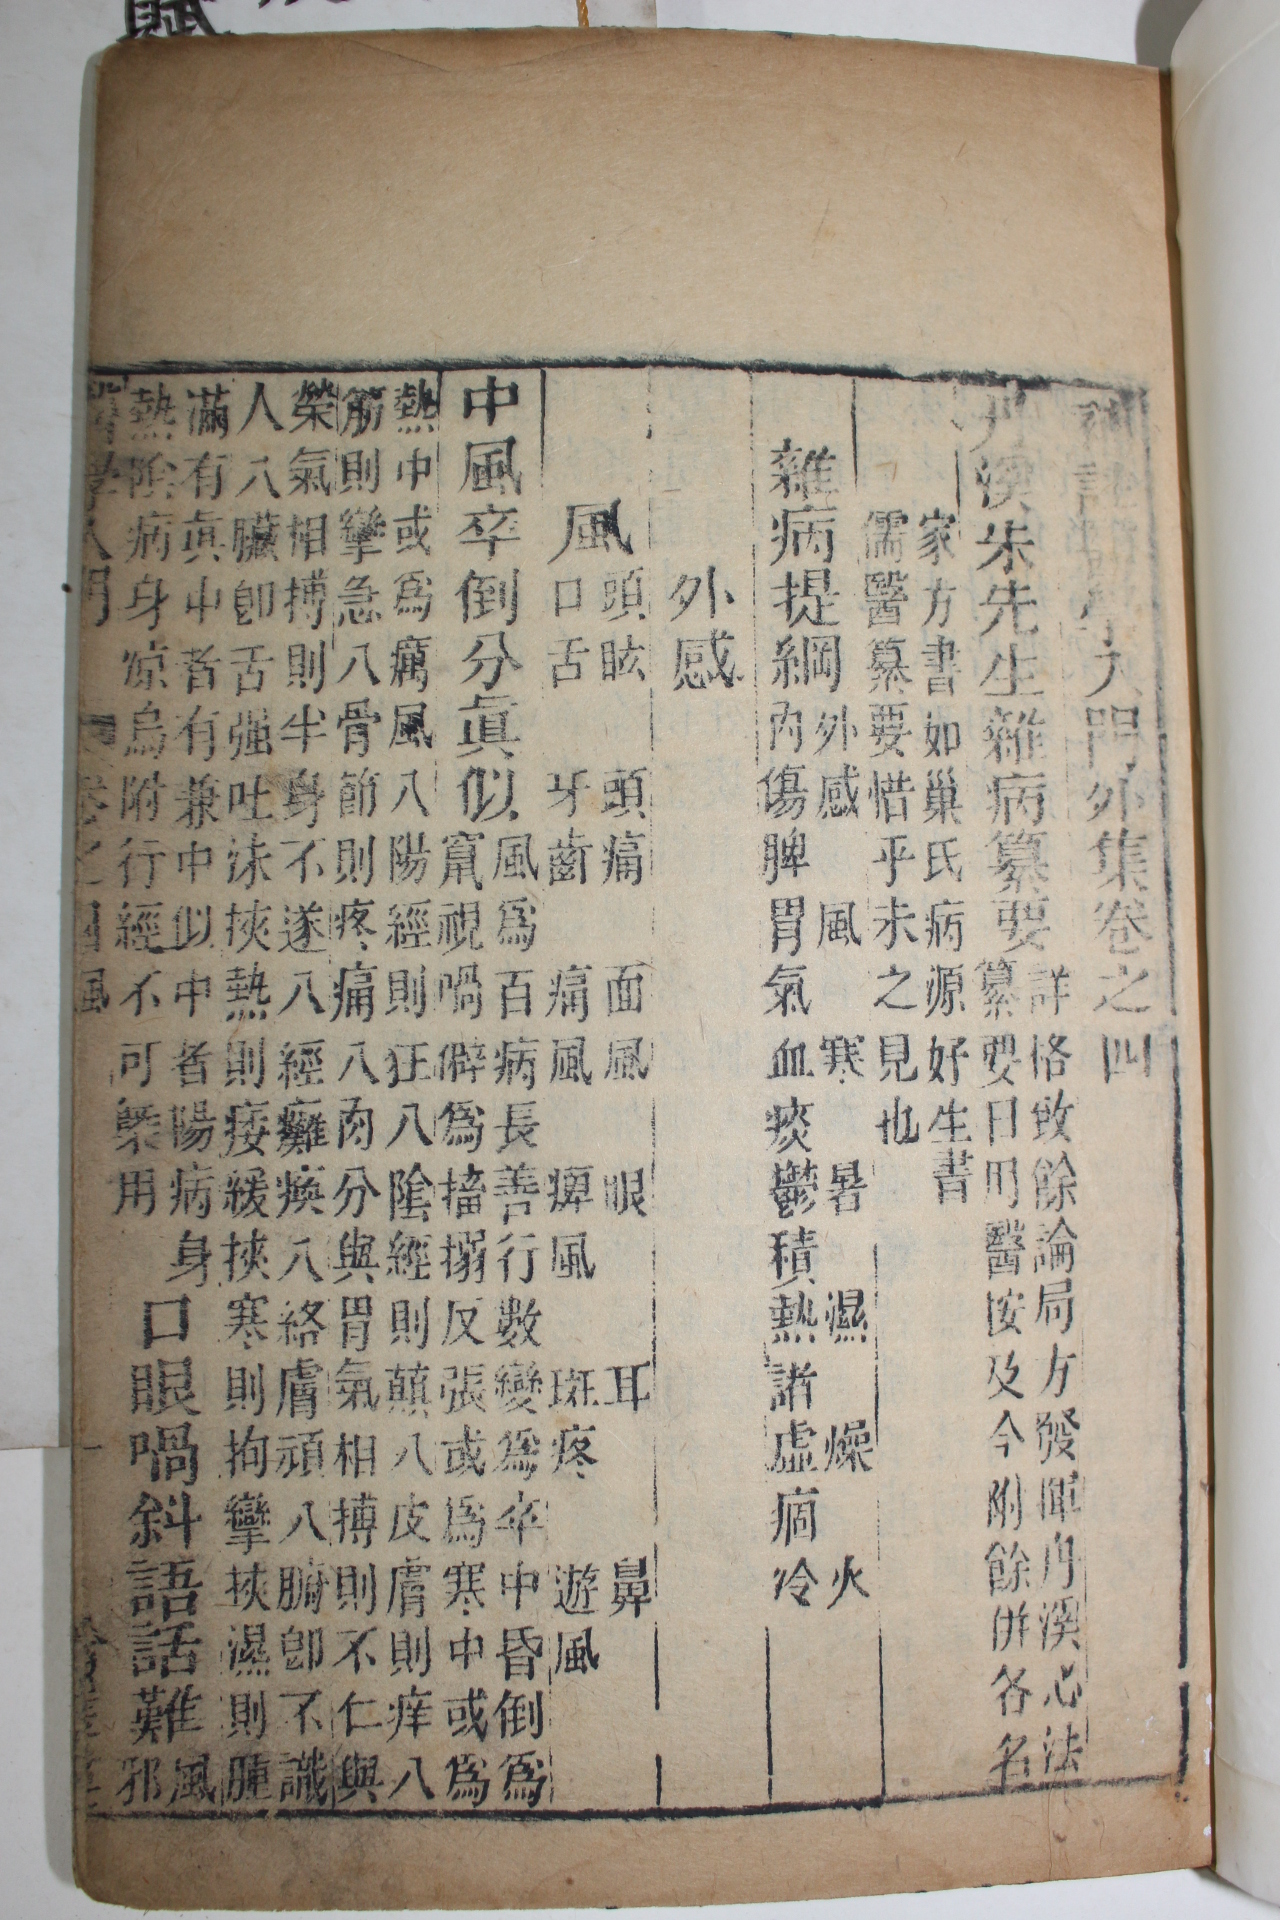 編註醫學入門外集卷之四
丹溪朱先生雜病纂要
詳格致餘論局方發揮丹溪心法
纂要日用醫按及今附餘併各名
家方書如巢氏病源好生書
儒醫纂要惜乎未之見也
雜病提綱
外感 風 寒 暑 濕 燥 火
內傷脾胃氣血痰鬱積熱諸虛痼冷
外感
風
頭眩 頭痛 面風 眼 耳 鼻
口舌 牙齒 痛風 痺風 斑疹 遊風
中風卒倒分眞似
風爲百病長善行數變爲卒中昏倒爲
竄視喎僻爲搐搦反張或爲寒中或爲
熱中或爲癘風八陽經則狂八陰經則顚八皮膚則痒八
筋則攣急八骨節則疼痛八肉分與胃氣相搏則不仁與
榮氣相搏則半身不遂八經癱瘓八絡膚頑八腑卽不識
人八臟卽舌强吐沬挾熱則痿緩挾寒則拘攣挾濕則腫
滿有眞中者有兼中似中者陽病身
熱陰病身凉烏附行經不可槩用
口眼喎斜語話難
風
邪
醫學入門
卷之四風
一